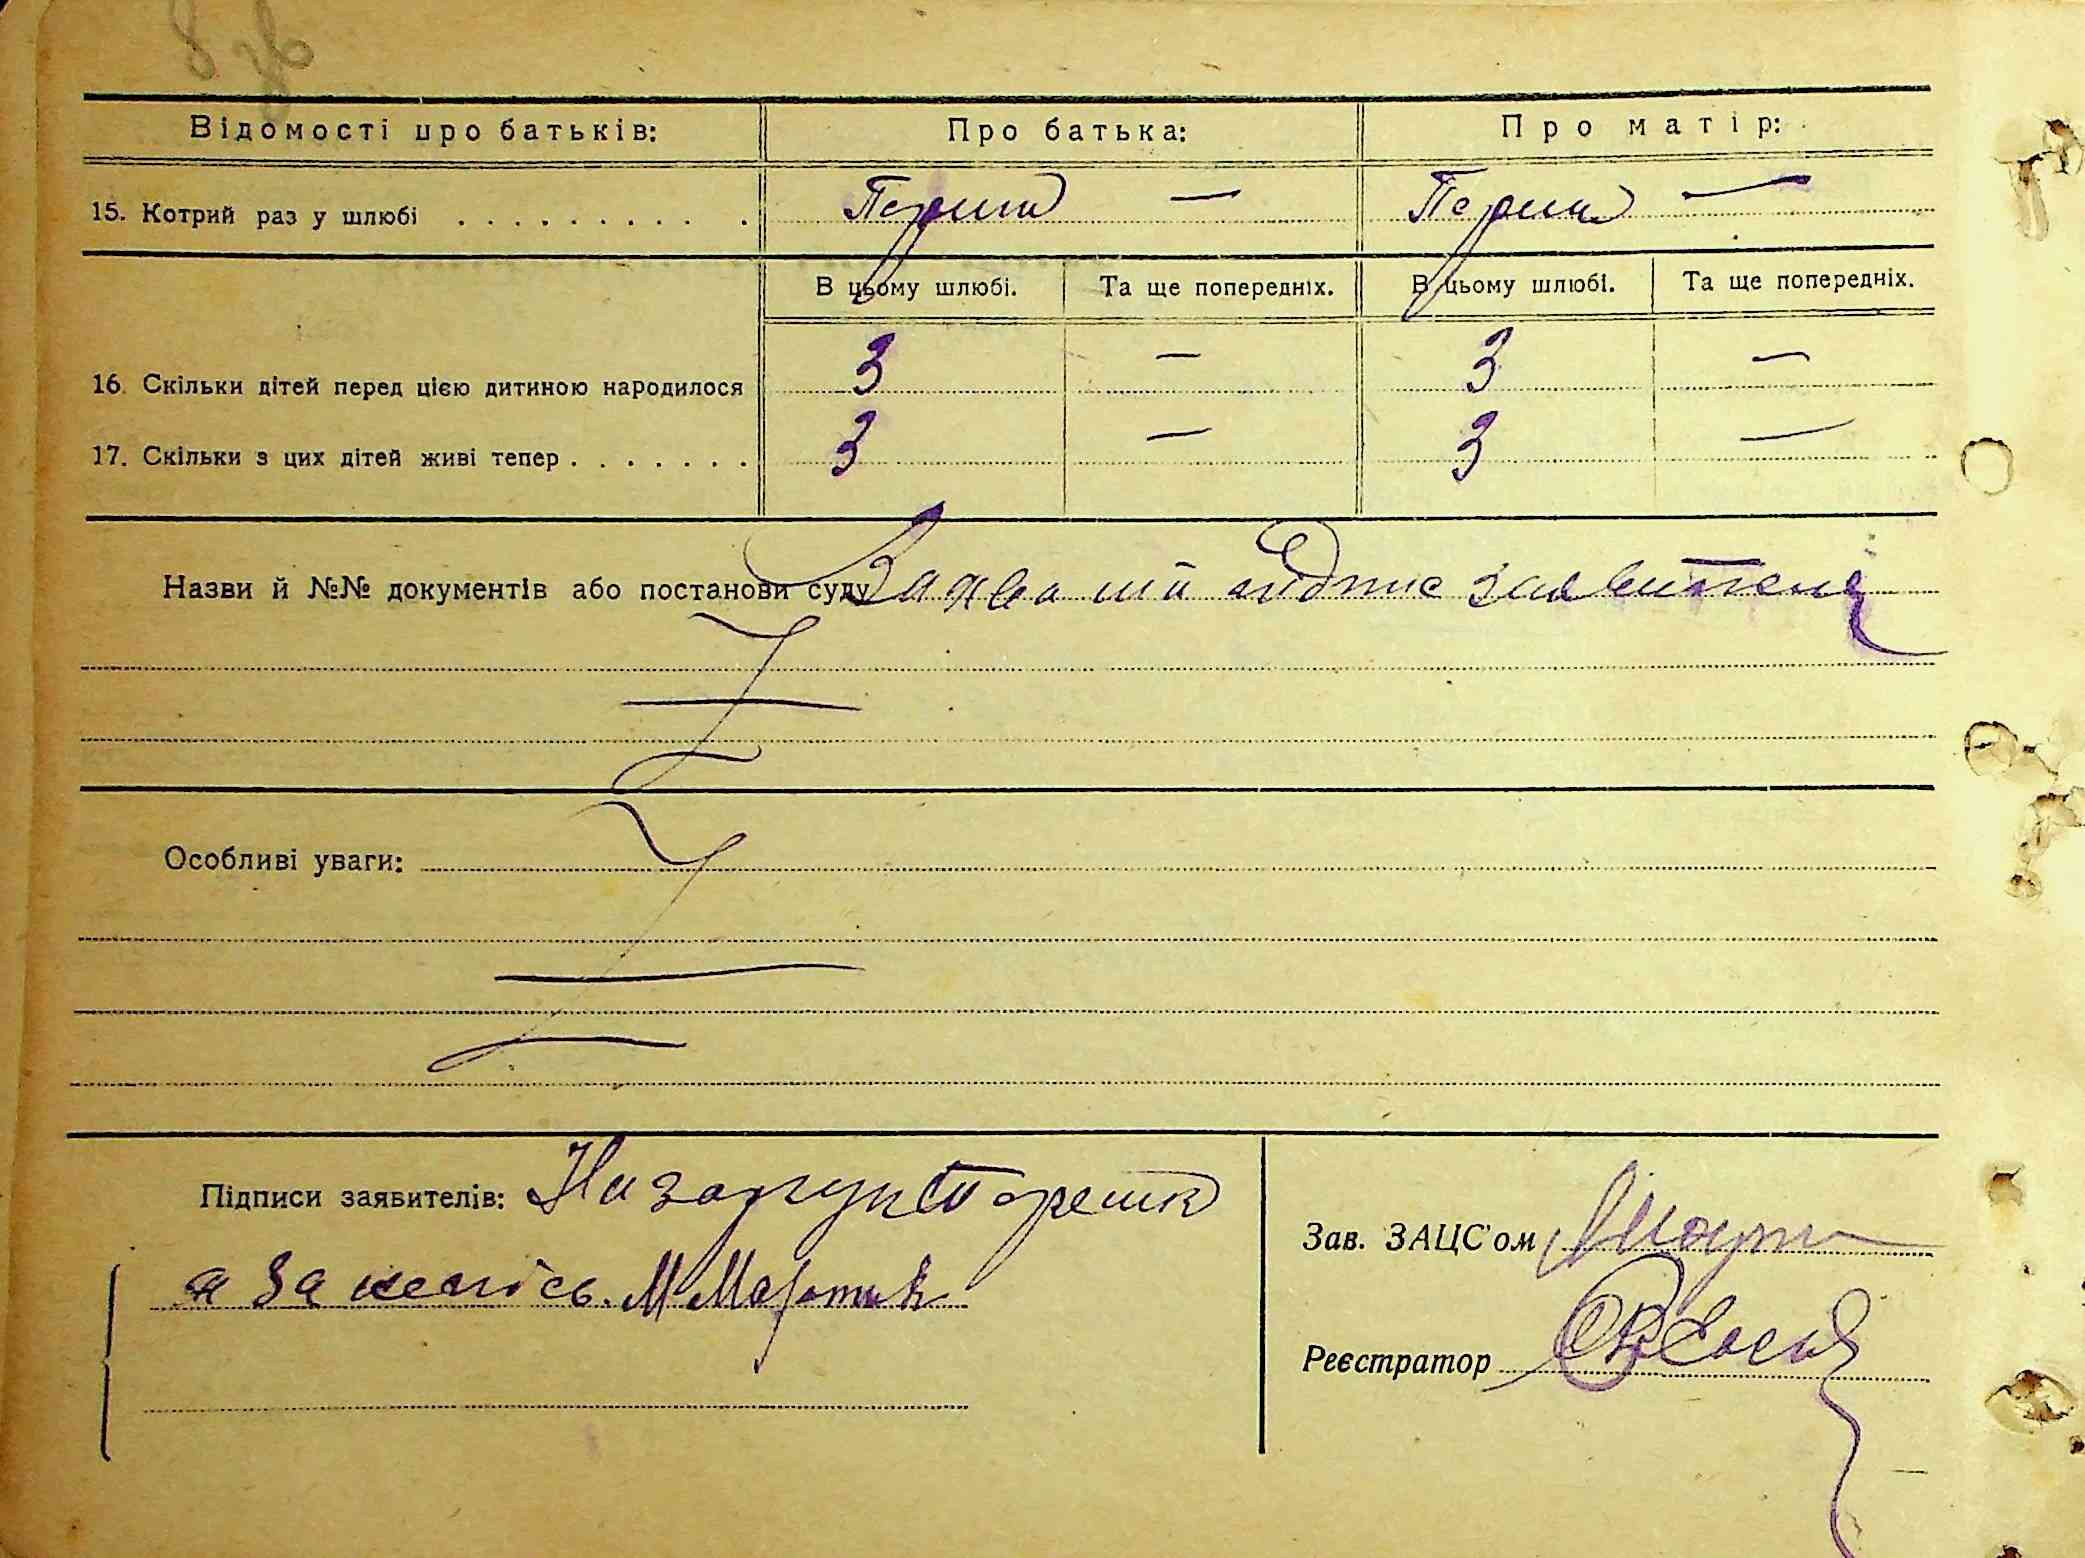 8 зв
Відомості про батьків: Про батька: Про матір:
15. Котрий раз у шлюбі . . . . . . . . . . Перши — Перши —
В цьому шлюбі. Та ще попередніх. В цьому шлюбі. Та ще попередніх.
16. Скільки дітей перед цією дитиною народилося 3 — 3 —
17. Скільки з цих дітей живі тепер . . . . . . . 3 — 3 —
Назви й №№ документів або постанови суду підпис заявителя
Особливі уваги:
Підписи заявителів:
а за
Зав. ЗАЦС'ом
Реєстратор